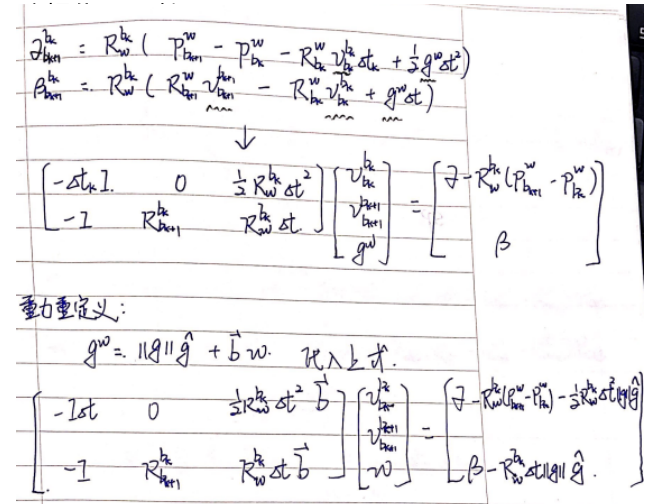 α_{b_{k+1}}^{b_k} = R_w^{b_k} ( P_{b_{k+1}}^w - P_{b_k}^w - R_{b_k}^w v_{b_k}^{b_k} δt_k + 1/2 g^w δt^2 )
β_{b_{k+1}}^{b_k} = R_w^{b_k} ( R_{b_{k+1}}^w v_{b_{k+1}}^{b_{k+1}} - R_{b_k}^w v_{b_k}^{b_k} + g^w δt )
↓
[ -δt_k I. 0 1/2 R_w^{b_k} δt^2 ; -I R_{b_{k+1}}^{b_k} R_w^{b_k} δt. ] [ v_{b_k}^{b_k} ; v_{b_{k+1}}^{b_{k+1}} ; g^w ] = [ α - R_w^{b_k} ( P_{b_{k+1}}^w - P_{b_k}^w ) ; β ]
重力重定义:
g^w = ||g|| ĝ + b⃗ w. 代入上式.
[ -Iδt 0 1/2 R_w^{b_k} δt^2 b⃗ ; -I R_{b_{k+1}}^{b_k} R_w^{b_k} δt b⃗ ] [ v_{b_k}^{b_k} ; v_{b_{k+1}}^{b_{k+1}} ; w ] = [ α - R_w^{b_k} ( P_{b_{k+1}}^w - P_{b_k}^w ) - 1/2 R_w^{b_k} δt^2 ||g|| ĝ ; β - R_w^{b_k} δt ||g|| ĝ . ]